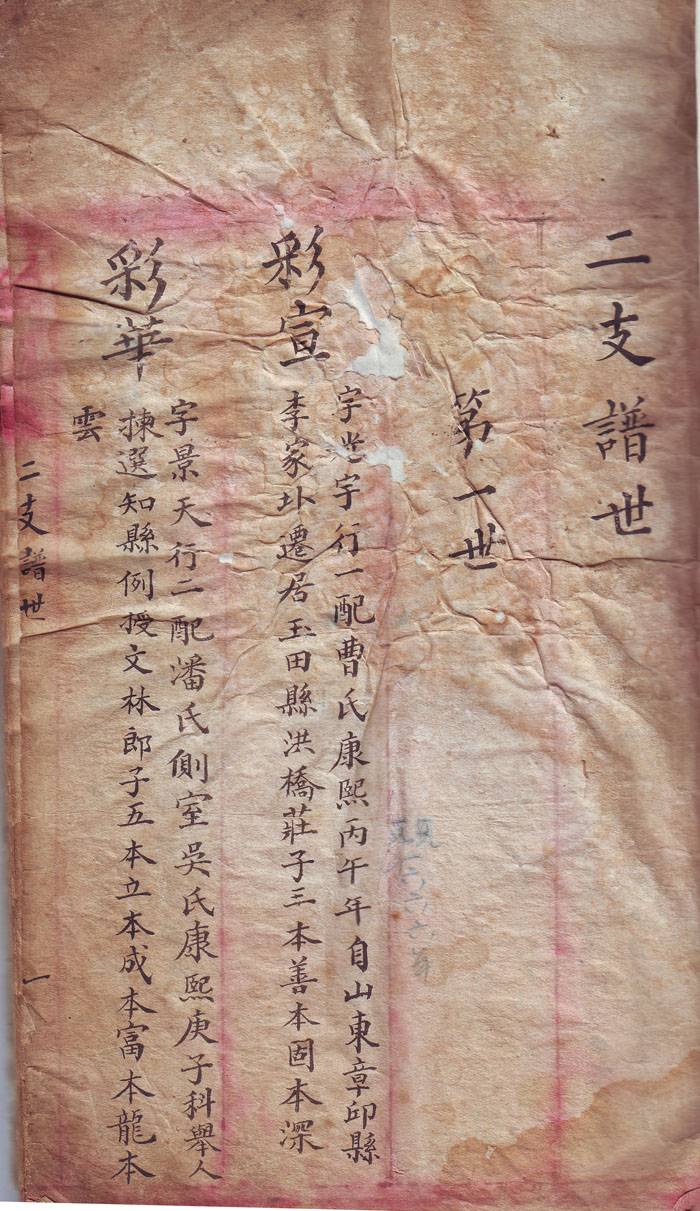 二支譜世
第一世
彩宣
字光宇行一配曹氏康熙丙午年自山東章邱縣
李家圤遷居玉田縣洪橋莊子三本善本固本深
彩華
字景天行二配潘氏側室吳氏康熙庚子科舉人
揀選知縣例授文林郎子五本立本成本富本龍本
雲
二支譜世
一